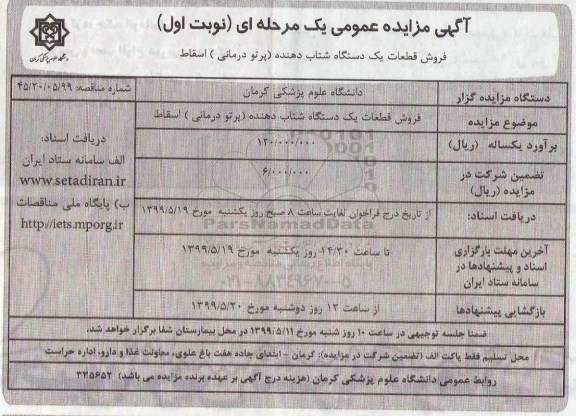 آگهی مزایده عمومی یک مرحله ای (نوبت اول)
فروش قطعات یک دستگاه شتاب دهنده (پرتو درمانی ) اسقاط
دستگاه مزایده گزار
دانشگاه علوم پزشکی کرمان
شماره مناقصه: ۴۵/۲۰/۰۵/۹۹
موضوع مزایده
فروش قطعات یک دستگاه شتاب دهنده (پرتو درمانی ) اسقاط
برآورد یکساله (ریال)
۱۲۰/۰۰۰/۰۰۰
تضمین شرکت در
مزایده (ریال)
۶/۰۰۰/۰۰۰
دریافت اسناد:
از تاریخ درج فراخوان لغایت ساعت ۸ صبح روز یکشنبه مورخ ۱۳۹۹/۵/۱۹
آخرین مهلت بارگزاری
اسناد و پیشنهادها در
سامانه ستاد ایران
تا ساعت ۱۴/۳۰ روز یکشنبه مورخ ۱۳۹۹/۵/۱۹
بازگشایی پیشنهادها
از ساعت ۱۲ روز دوشنبه مورخ ۱۳۹۹/۵/۲۰
دریافت اسناد:
الف سامانه ستاد ایران
www.setadiran.ir
ب) پایگاه ملی مناقصات
http//iets.mporg.ir
ضمنا جلسه توجیهی در ساعت ۱۰ روز شنبه مورخ ۱۳۹۹/۵/۱۱ در محل بیمارستان شفا برگزار خواهد شد.
محل تسلیم فقط پاکت الف (تضمین شرکت در مزایده): کرمان - ابتدای جاده هفت باغ علوی، معاونت غذا و دارو، اداره حراست
روابط عمومی دانشگاه علوم پزشکی کرمان (هزینه درج آگهی بر عهده برنده مزایده می باشد) ۳۳۵۶۵۲
ParsNamadData
۰۲۱-۸۸۳۴۹۶۷۰-۵